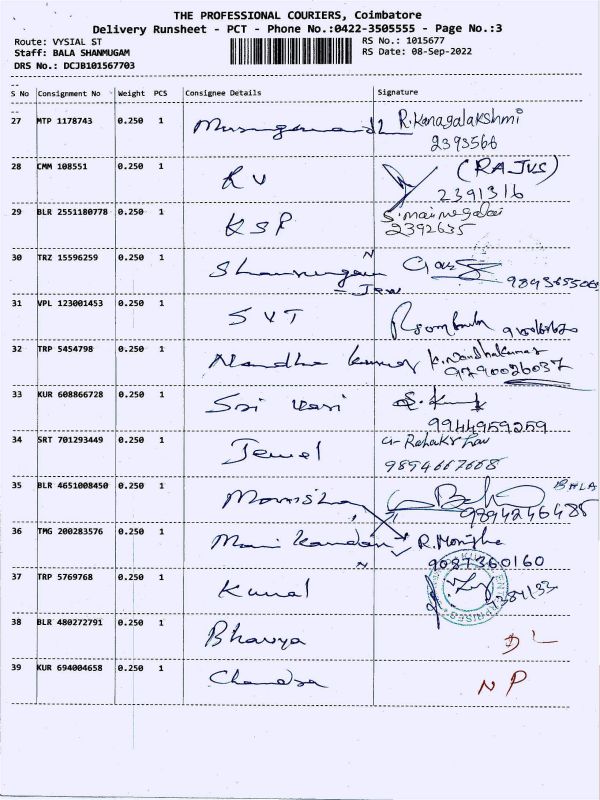 THE PROFESSIONAL COURIERS, Coimbatore
Delivery Runsheet - PCT - Phone No.:0422-3505555 - Page No.:3
Route: VYSIAL ST
RS No.: 1015677
Staff: BALA SHANMUGAM
RS Date: 08-Sep-2022
DRS No.: DCJB101567703
S No Consignment No Weight PCS Consignee Details Signature
27 MTP 1178743 0.250 1 R. Kanagalakshmi
2393566
28 CMM 108551 0.250 1 R V (RAJUS)
2391316
29 BLR 2551180778 0.250 1 K S P
2392635
30 TRZ 15596259 0.250 1
31 VPL 123001453 0.250 1 S V T
32 TRP 5454798 0.250 1 Nandha kumar K. Nandhakumar
9790026037
33 KUR 608866728 0.250 1 Sri Vari S. Kumar
9944959259
34 SRT 701293449 0.250 1 Jewel
9894667668
35 BLR 4651008450 0.250 1 Monisha BALA
9894246488
36 TMG 200283576 0.250 1 Mani kandan R. Monisha
9087360160
37 TRP 5769768 0.250 1 Kunal
38 BLR 480272791 0.250 1 Bhavya D L
39 KUR 694004658 0.250 1 Chandra N P